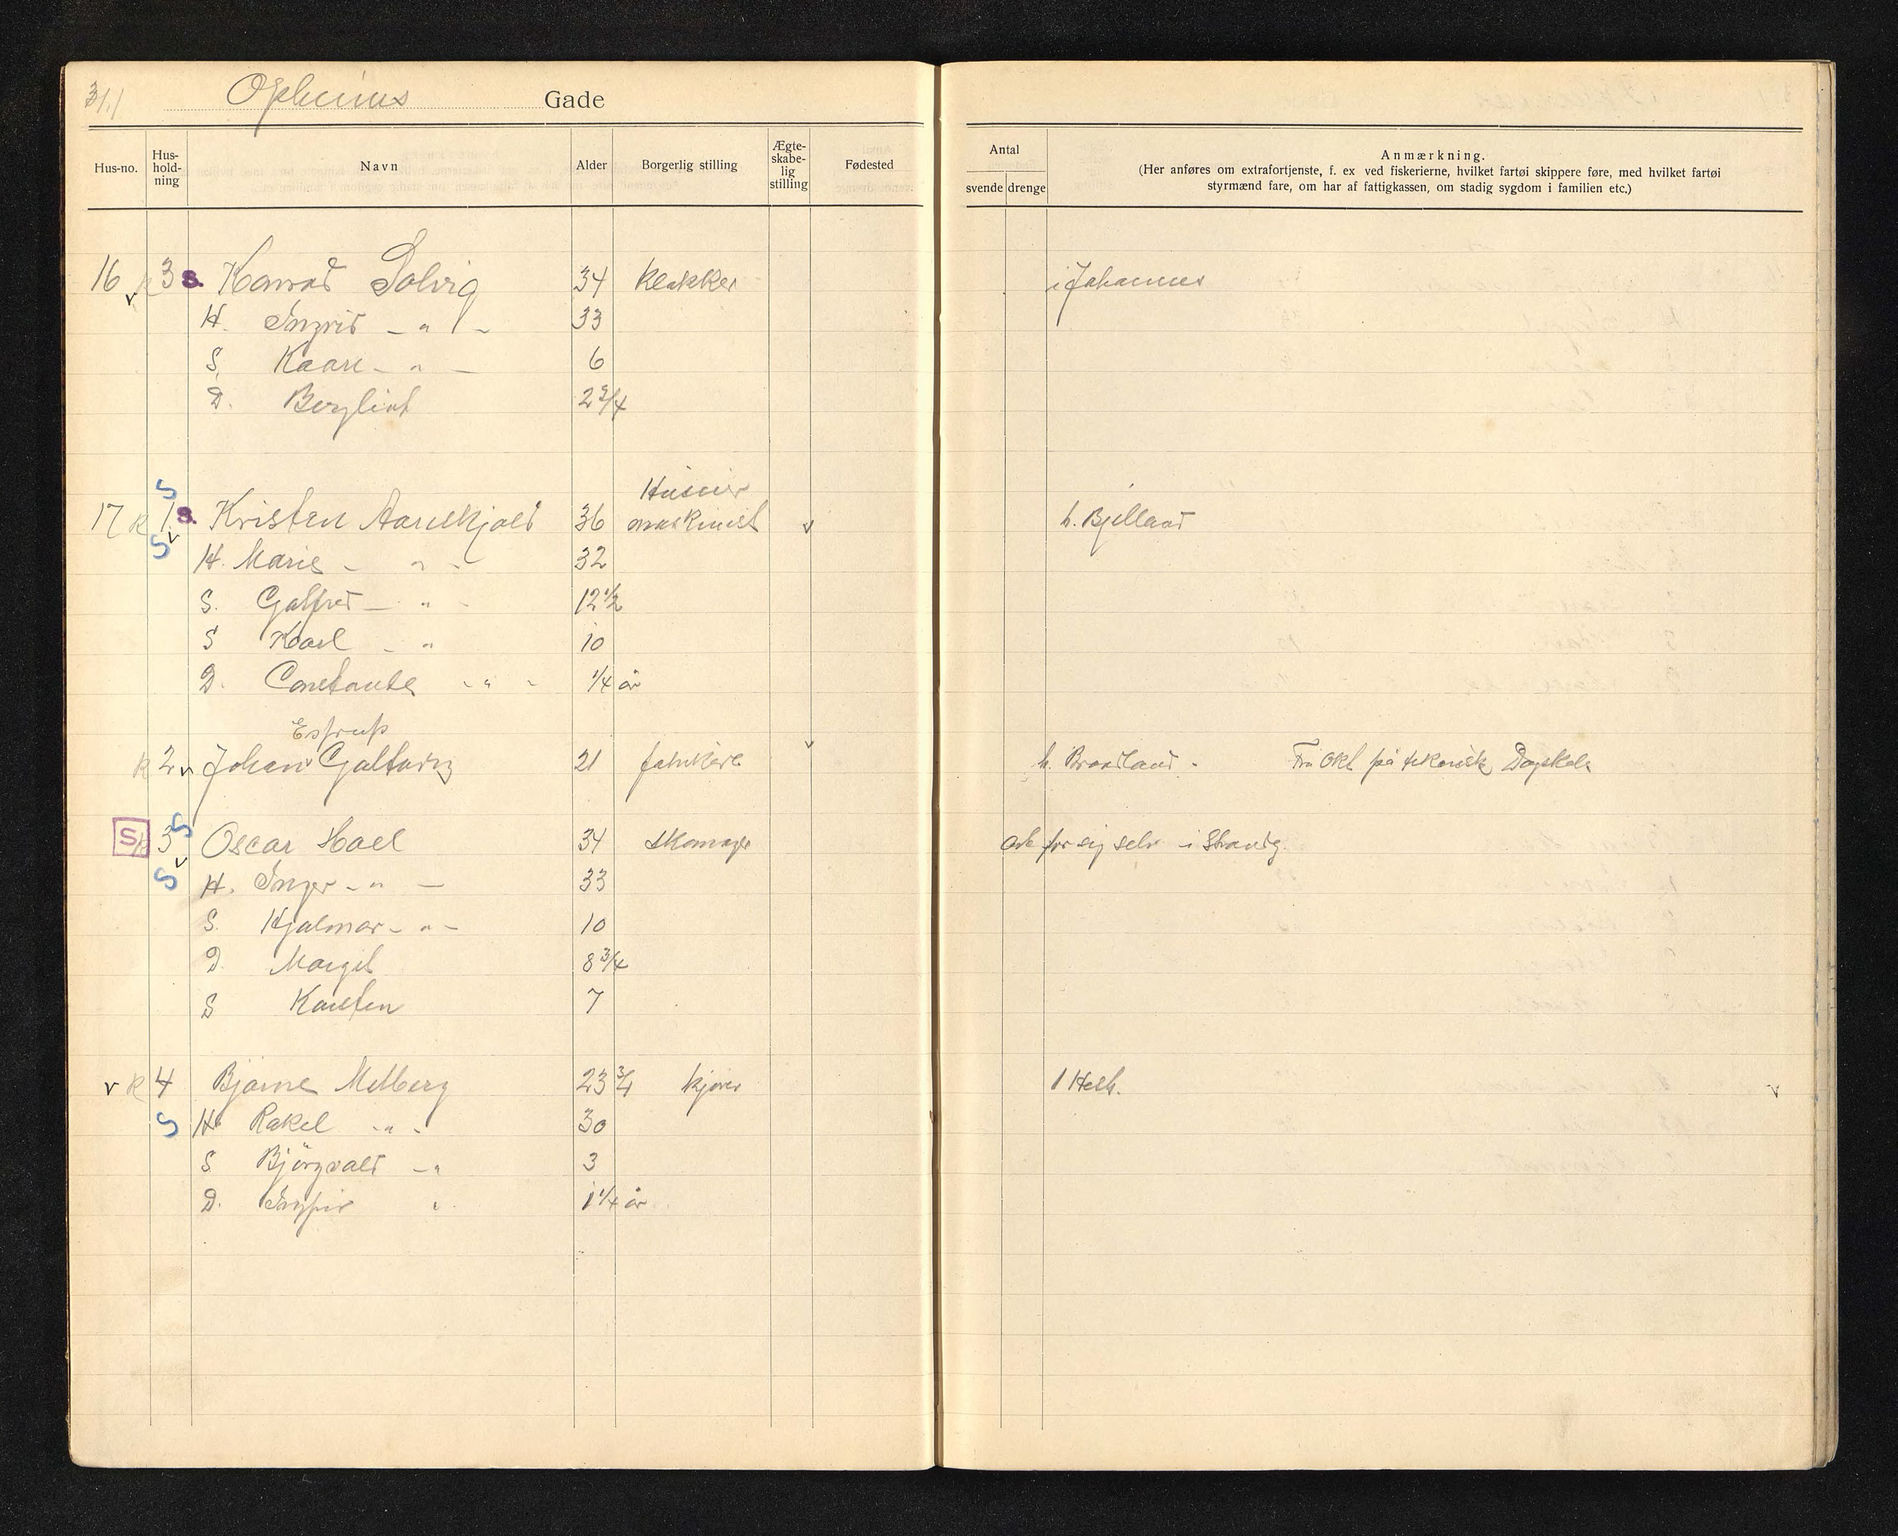 3/11 Opheims Gade
Hus-no. Hus-hold-ning Navn Alder Borgerlig stilling Ægte-skabe-lig stilling Fødested
Antal svende drenge
Anmærkning.
(Her anføres om extrafortjenste, f. ex ved fiskerierne, hvilket fartøi skippere føre, med hvilket fartøi
styrmænd fare, om har af fattigkassen, om stadig sygdom i familien etc.)
16 v k 3 S. Konrad Solvig 34 Klækker i Johannes
H. Ingrid - " - 33
S. Kaare - " - 6
D. Bergliot 2 3/4
S Huseier
17 k 1 S. Kristen Aanekjold 36 maskinist v h. Bjelland
S v
H. Marie - " - 32
S. Galfred - " - 12 1/2
S Karl - " 10
D. Constante - " - 1/4 år
Estrup
k 2 v Johan Galtung 21 v h. Braadland - Fra Okt på teknisk Dagskole
S k 3 S Oscar Hoel 34 skomager arb for sig selv i Strandg.
v S H. Inger - " - 33
S. Hjalmar - " - 10
D. Margit 8 3/4
S Karsten 7
v k 4 Bjarne Melberg 23 3/4 kjører 1 Hest. v
S H Rakel - " - 30
S Björgvald - " 3
D. " 1 1/4 år